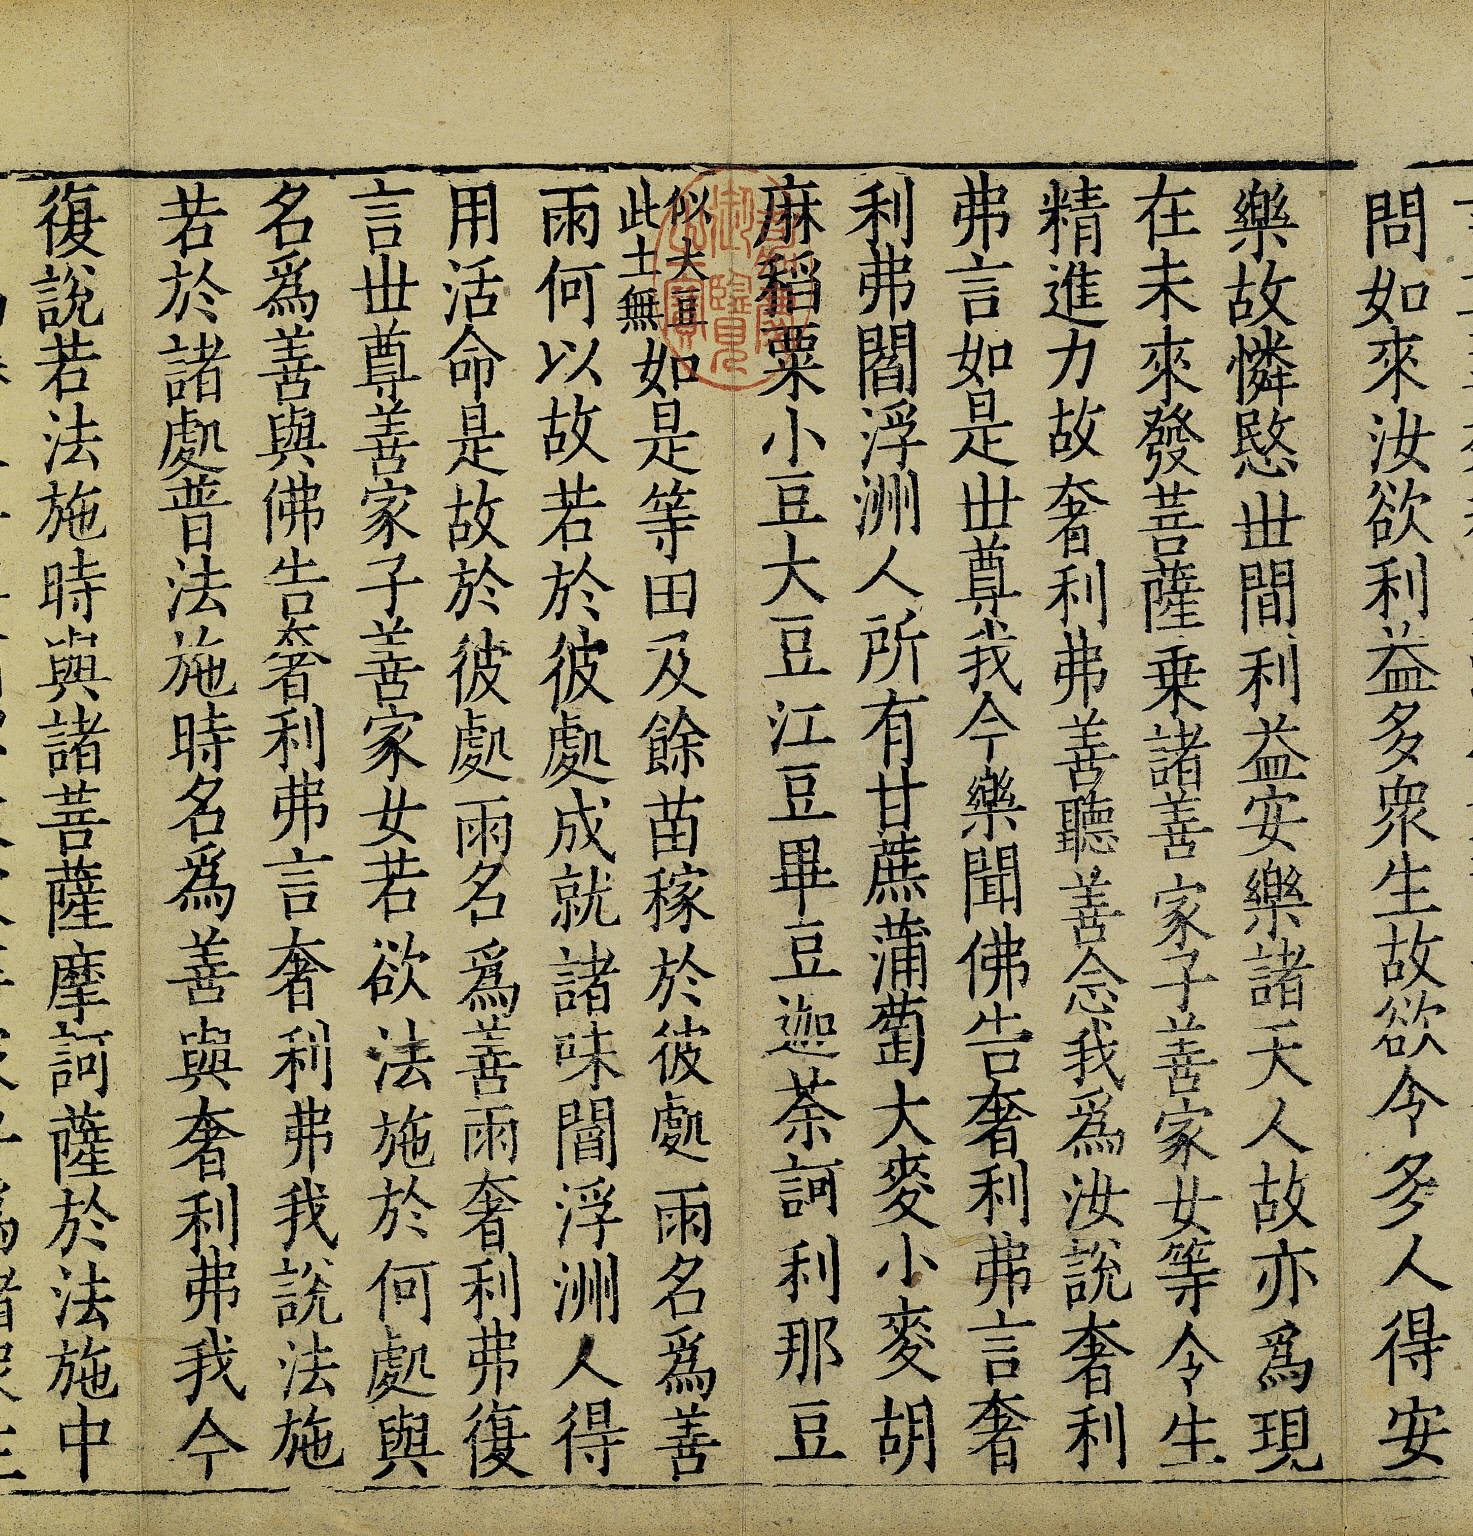 問如來汝欲利益多衆生故欲令多人得安
樂故憐愍世間利益安樂諸天人故亦爲現
在未來發菩薩乗諸善家子善家女等令生
精進力故奢利弗善聽善念我爲汝說奢利
弗言如是世尊我今樂聞佛告奢利弗言奢
利弗閻浮洲人所有甘蔗蒲萄大麥小麥胡
麻稻粟小豆大豆江豆畢豆迦荼訶利那豆
似大豆此土無如是等田及餘苗稼於彼處雨名爲善
雨何以故若於彼處成就諸味閻浮洲人得
用活命是故於彼處雨名爲善雨奢利弗復
言世尊善家子善家女若欲法施於何處與
名爲善與佛告奢利弗言奢利弗我說法施
若於諸處普法施時名爲善與奢利弗我今
復說若法施時與諸菩薩摩訶薩於法施中